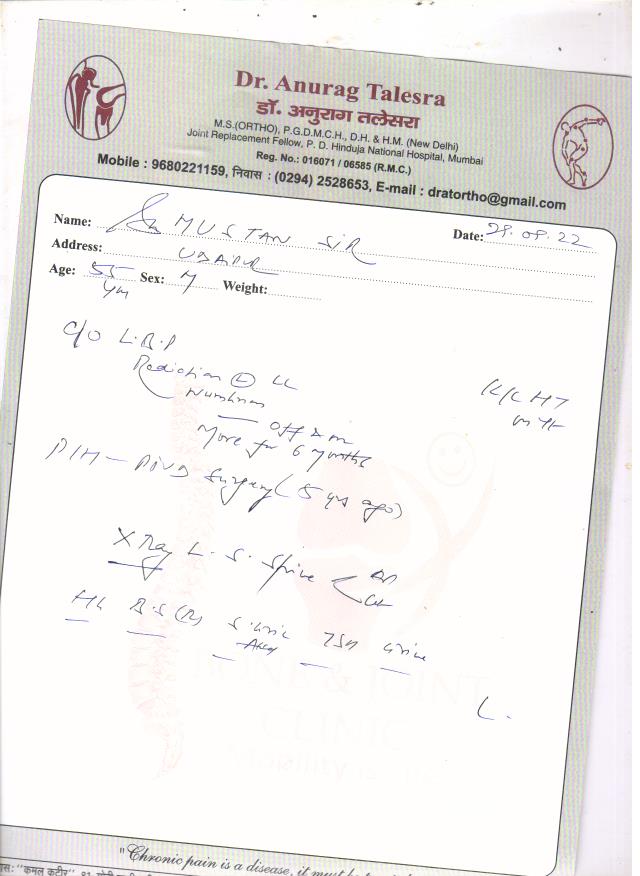 Dr. Anurag Talesra
डॉ. अनुराग तलेसरा
M.S.(ORTHO), P.G.D.M.C.H., D.H. & H.M. (New Delhi)
Joint Replacement Fellow, P. D. Hinduja National Hospital, Mumbai
Reg. No.: 016071 / 06585 (R.M.C.)
Mobile : 9680221159, निवास : (0294) 2528653, E-mail : dratortho@gmail.com
Name: MUSTAN SIR Date: 29.08.22
Address: UDAIPUR
Age: 55 Sex: M Weight:
C/O L.B.P
Radiation (L) LL
Numbness
K/C HT
More for 6 Months
P/H - PIVD Surgery (5 yrs ago)
X Ray L. S. Spine
Hb B.S (R) S. Uric TSH Urine
Acid
BONE & JOINT
CLINIC
"Chronic pain is a disease, it must